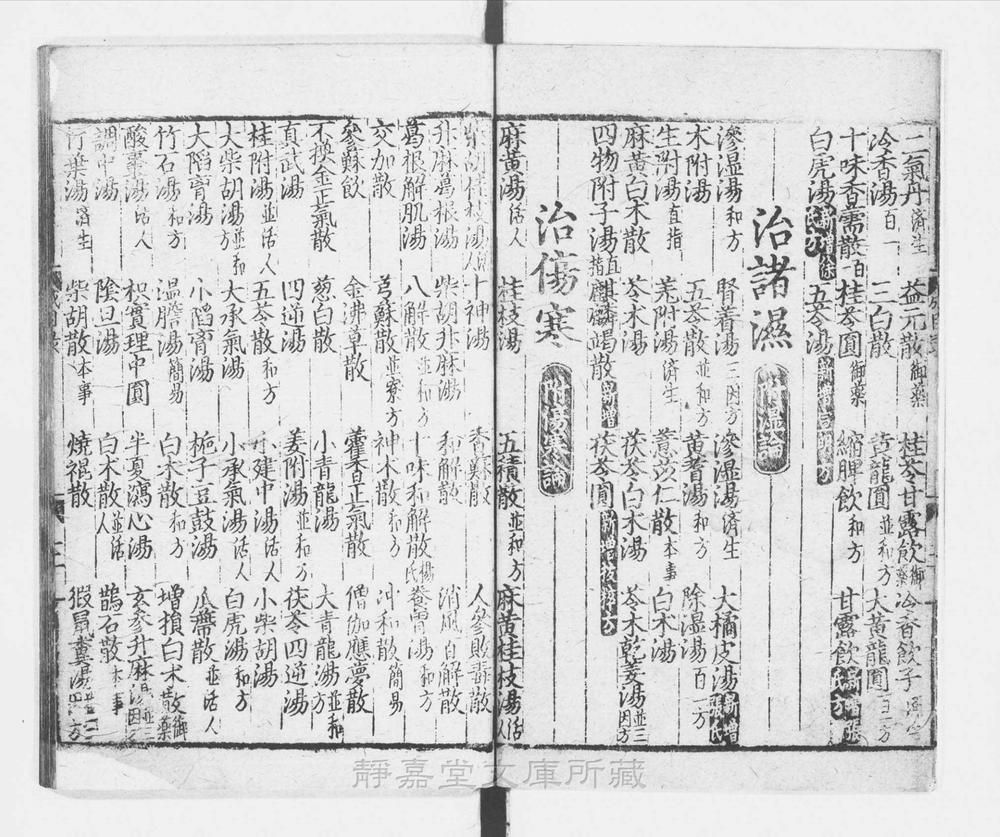 二氣丹濟生 益元散御藥 桂苓甘露飲御藥 冷香飲子
冷香湯百一 三白散 黃龍圓並和方 大黃龍圓百一方
十味香需散百一 桂苓圓御藥 縮脾飲和方 甘露飲新增
白虎湯新增 五苓湯新增
治諸濕 附濕論
滲湿湯和方 腎着湯三因方 滲湿湯濟生 大橘皮湯新增
术附湯 五苓散並和方 黃耆湯和方 除湿湯百一方
生附湯直指 羗附湯濟生 薏苡仁散本事 白术湯
麻黃白术散 苓术湯 茯苓白术湯 苓术乾姜湯並三因方
四物附子湯直指 麒麟竭散新增 茯苓圓新增
治傷寒 附傷寒論
麻黃湯活人 桂枝湯 五積散並和方 麻黃桂枝湯活人
柴胡桂枝湯活人 十神湯 香蘇散 人參敗毒散
升麻葛根湯 柴胡升麻湯 和解散 消風百解散
葛根解肌湯 八解散並和方 十味和解散楊氏 養胃湯和方
交加散 芎蘇散並寮方 神术散和方 冲和散簡易
參蘇飲 金沸草散 藿香正氣散 僧伽應夢散
不換金正氣散 葱白散 小青龍湯 大青龍湯並和方
真武湯 四逆湯 姜附湯並和方 茯苓四逆湯
桂附湯並活人 五苓散和方 小建中湯活人 小柴胡湯
大柴胡湯並和方 大承氣湯 小承氣湯活人 白虎湯和方
大陷胷湯 小陷胷湯 梔子豆豉湯 瓜蔕散並活人
竹石湯和方 温膽湯簡易 白术散和方 增損白术散御藥
酸棗湯活人 枳實理中圓 半夏瀉心湯 玄參升麻湯
調中湯 陰旦湯 白术散並活人 鵲石散本事
竹葉湯濟生 柴胡散本事 燒裩散 猳鼠糞湯
靜嘉堂文庫所藏